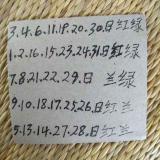 3.4.6.11.19.20.30.日红绿
1.2.16.15.23.24.31日红绿
7.8.21.22.29.日 兰绿
9.10.18.17.25.26.日红兰
5.13.14.27.28.日红兰